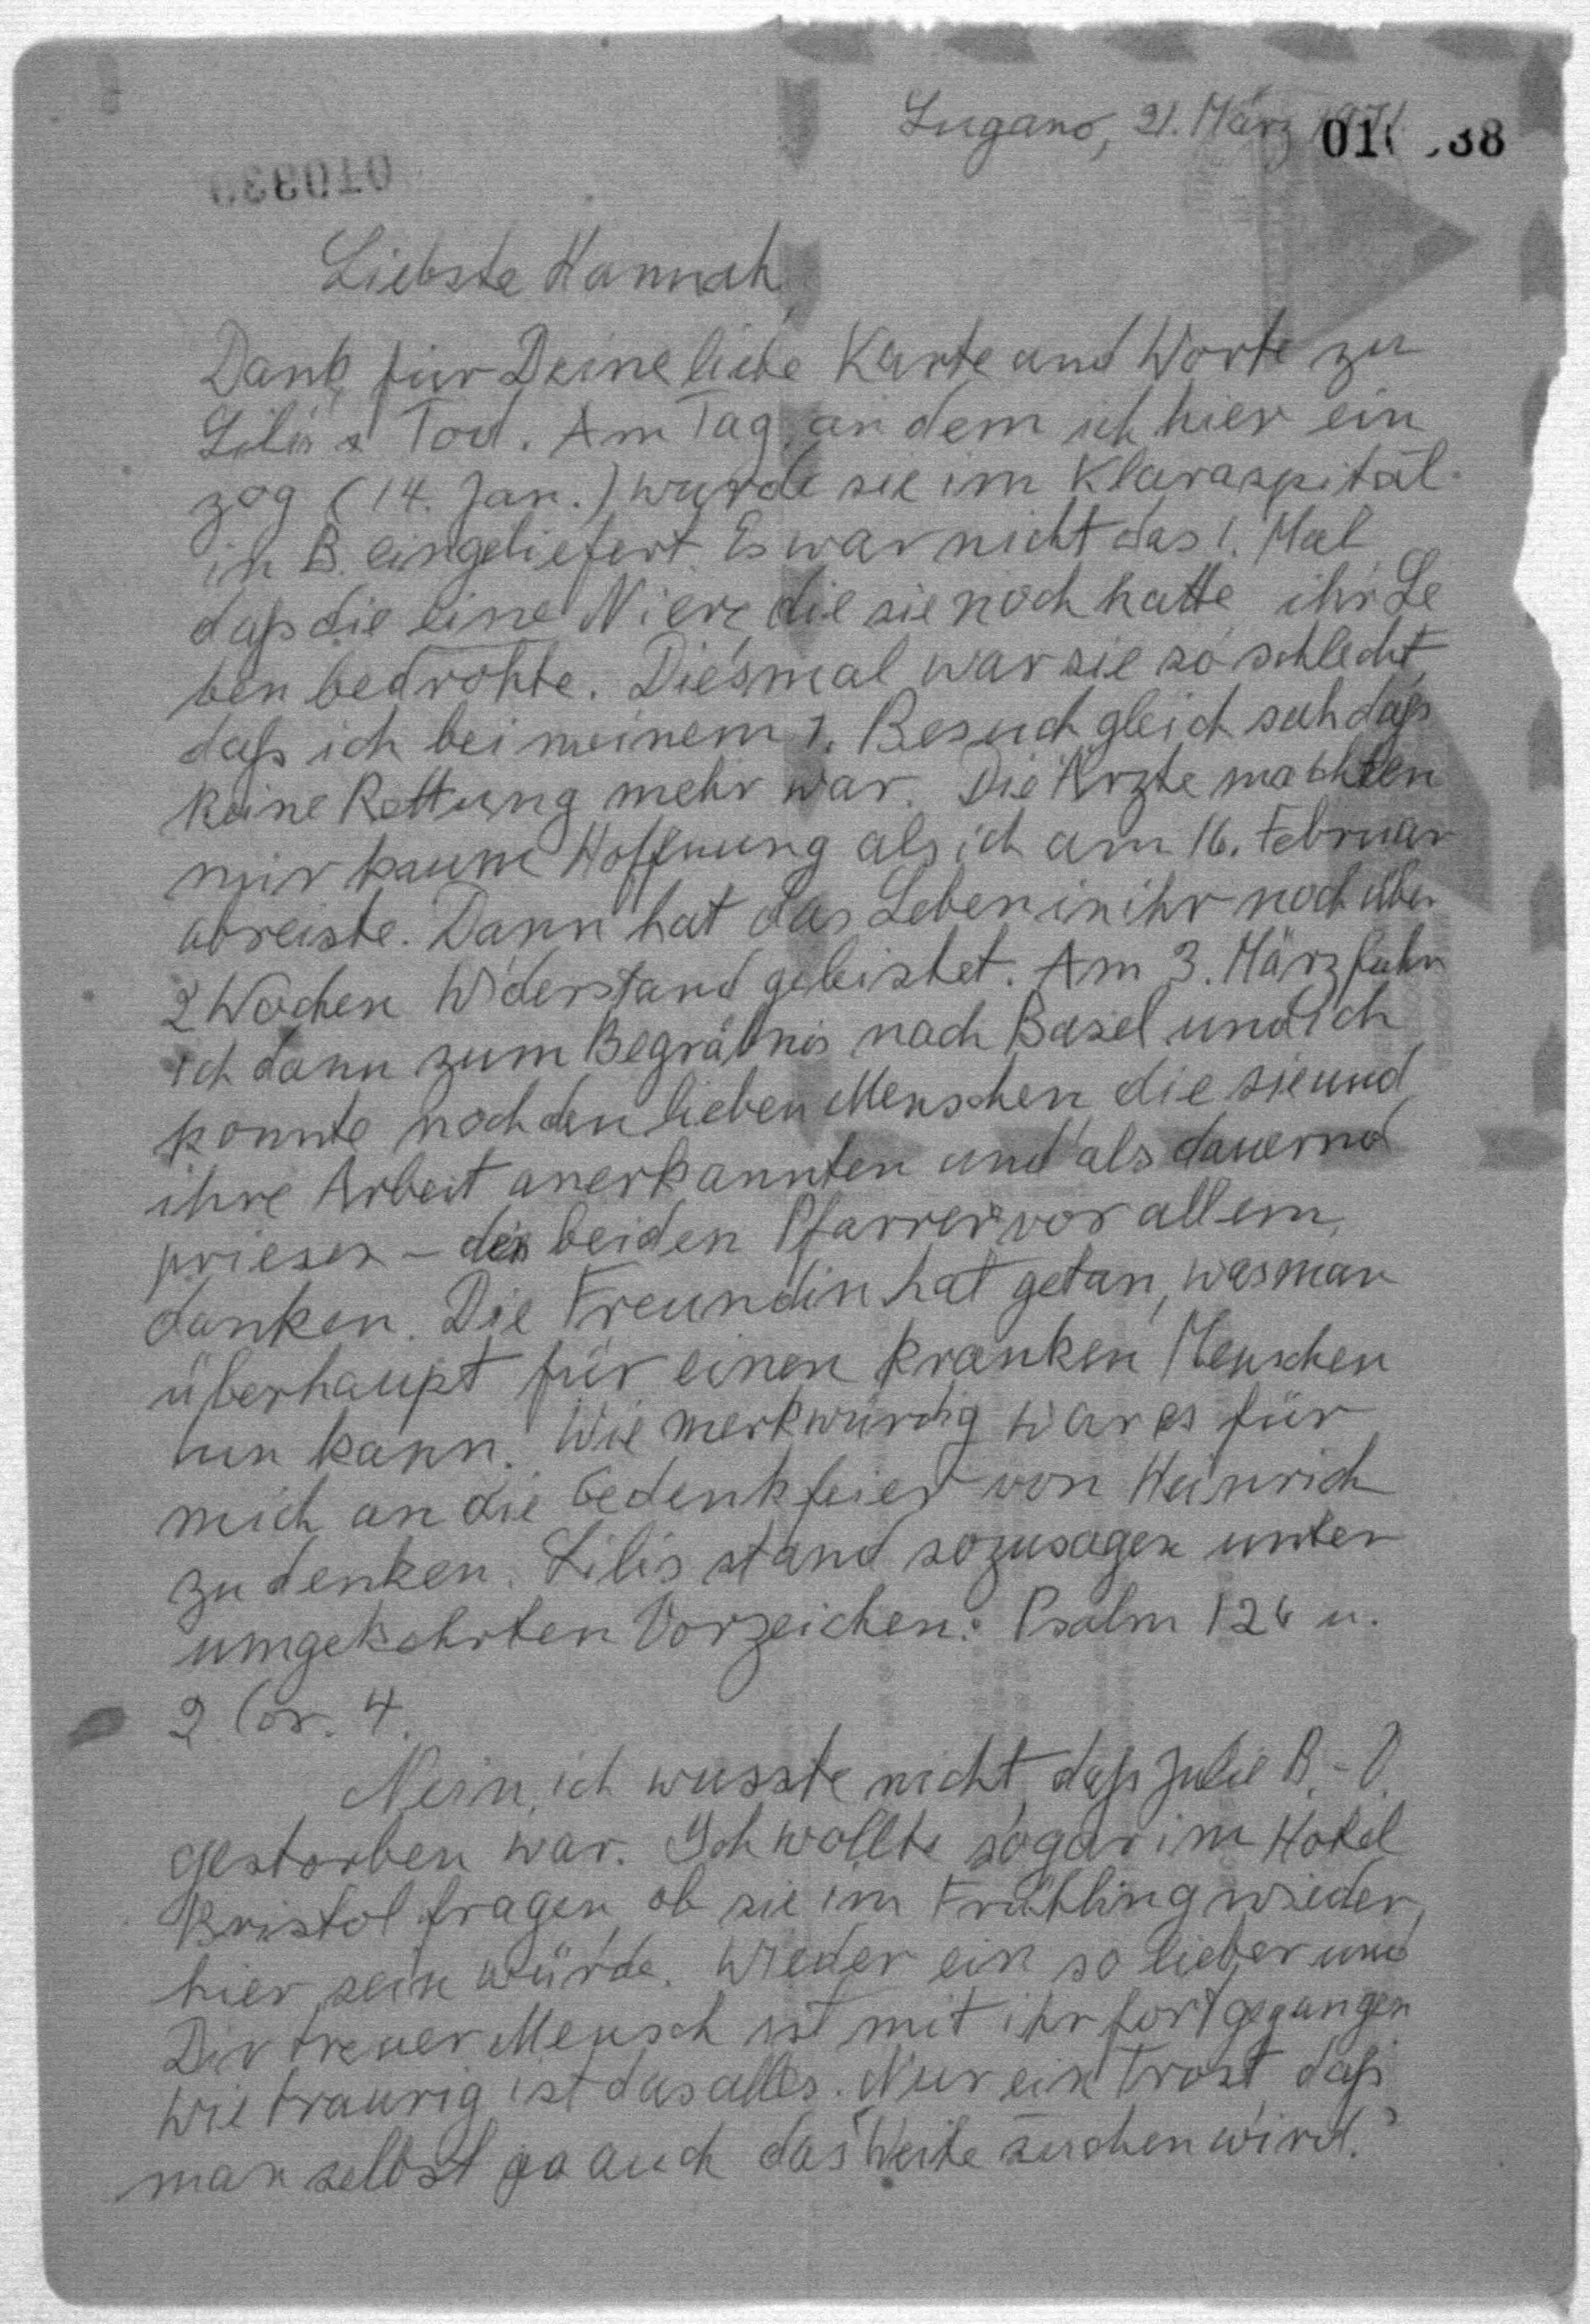 Lugano, 21. März 1971
01 38
Liebste Hannah,
Dank für Deine liebe Karte und Worte zu
Lilis Tod. Am Tag, an dem ich hier ein
zog (14. Jan.) wurde sie im Klaraspital
in B. eingeliefert. Es war nicht das 1. Mal
daß die eine Niere die sie noch hatte ihr Le
ben bedrohte. Diesmal war sie so schlecht,
daß ich bei meinem 1. Besuch gleich sah daß
keine Rettung mehr war. Die Ärzte machten
mir kaum Hoffnung als ich am 16. Februar
abreiste. Dann hat das Leben in ihr noch über
2 Wochen Widerstand geleistet. Am 3. März fuhr
ich dann zum Begräbnis nach Basel und ich
konnte noch den lieben Menschen die sie und
ihre Arbeit anerkannten und als dauernd
priesen – den beiden Pfarrern vor allem,
danken. Die Freundin hat getan, was man
überhaupt für einen kranken Menschen
tun kann. Wie merkwürdig war es für
mich an die Gedenkfeier von Heinrich
zu denken. Lilis stand sozusagen unter
umgekehrten Vorzeichen: Psalm 126 u.
2 Cor. 4.
Nein, ich wusste nicht, daß Julie B.-V.
gestorben war. Ich wollte sogar im Hotel
Bristol fragen ob sie im Frühling wieder
hier sein würde. Wieder ein so lieber und
Dir treuer Mensch ist mit ihr fortgegangen
wie traurig ist das alles. Nur ein Trost, daß
man selbst ja auch das "Weite suchen wird."